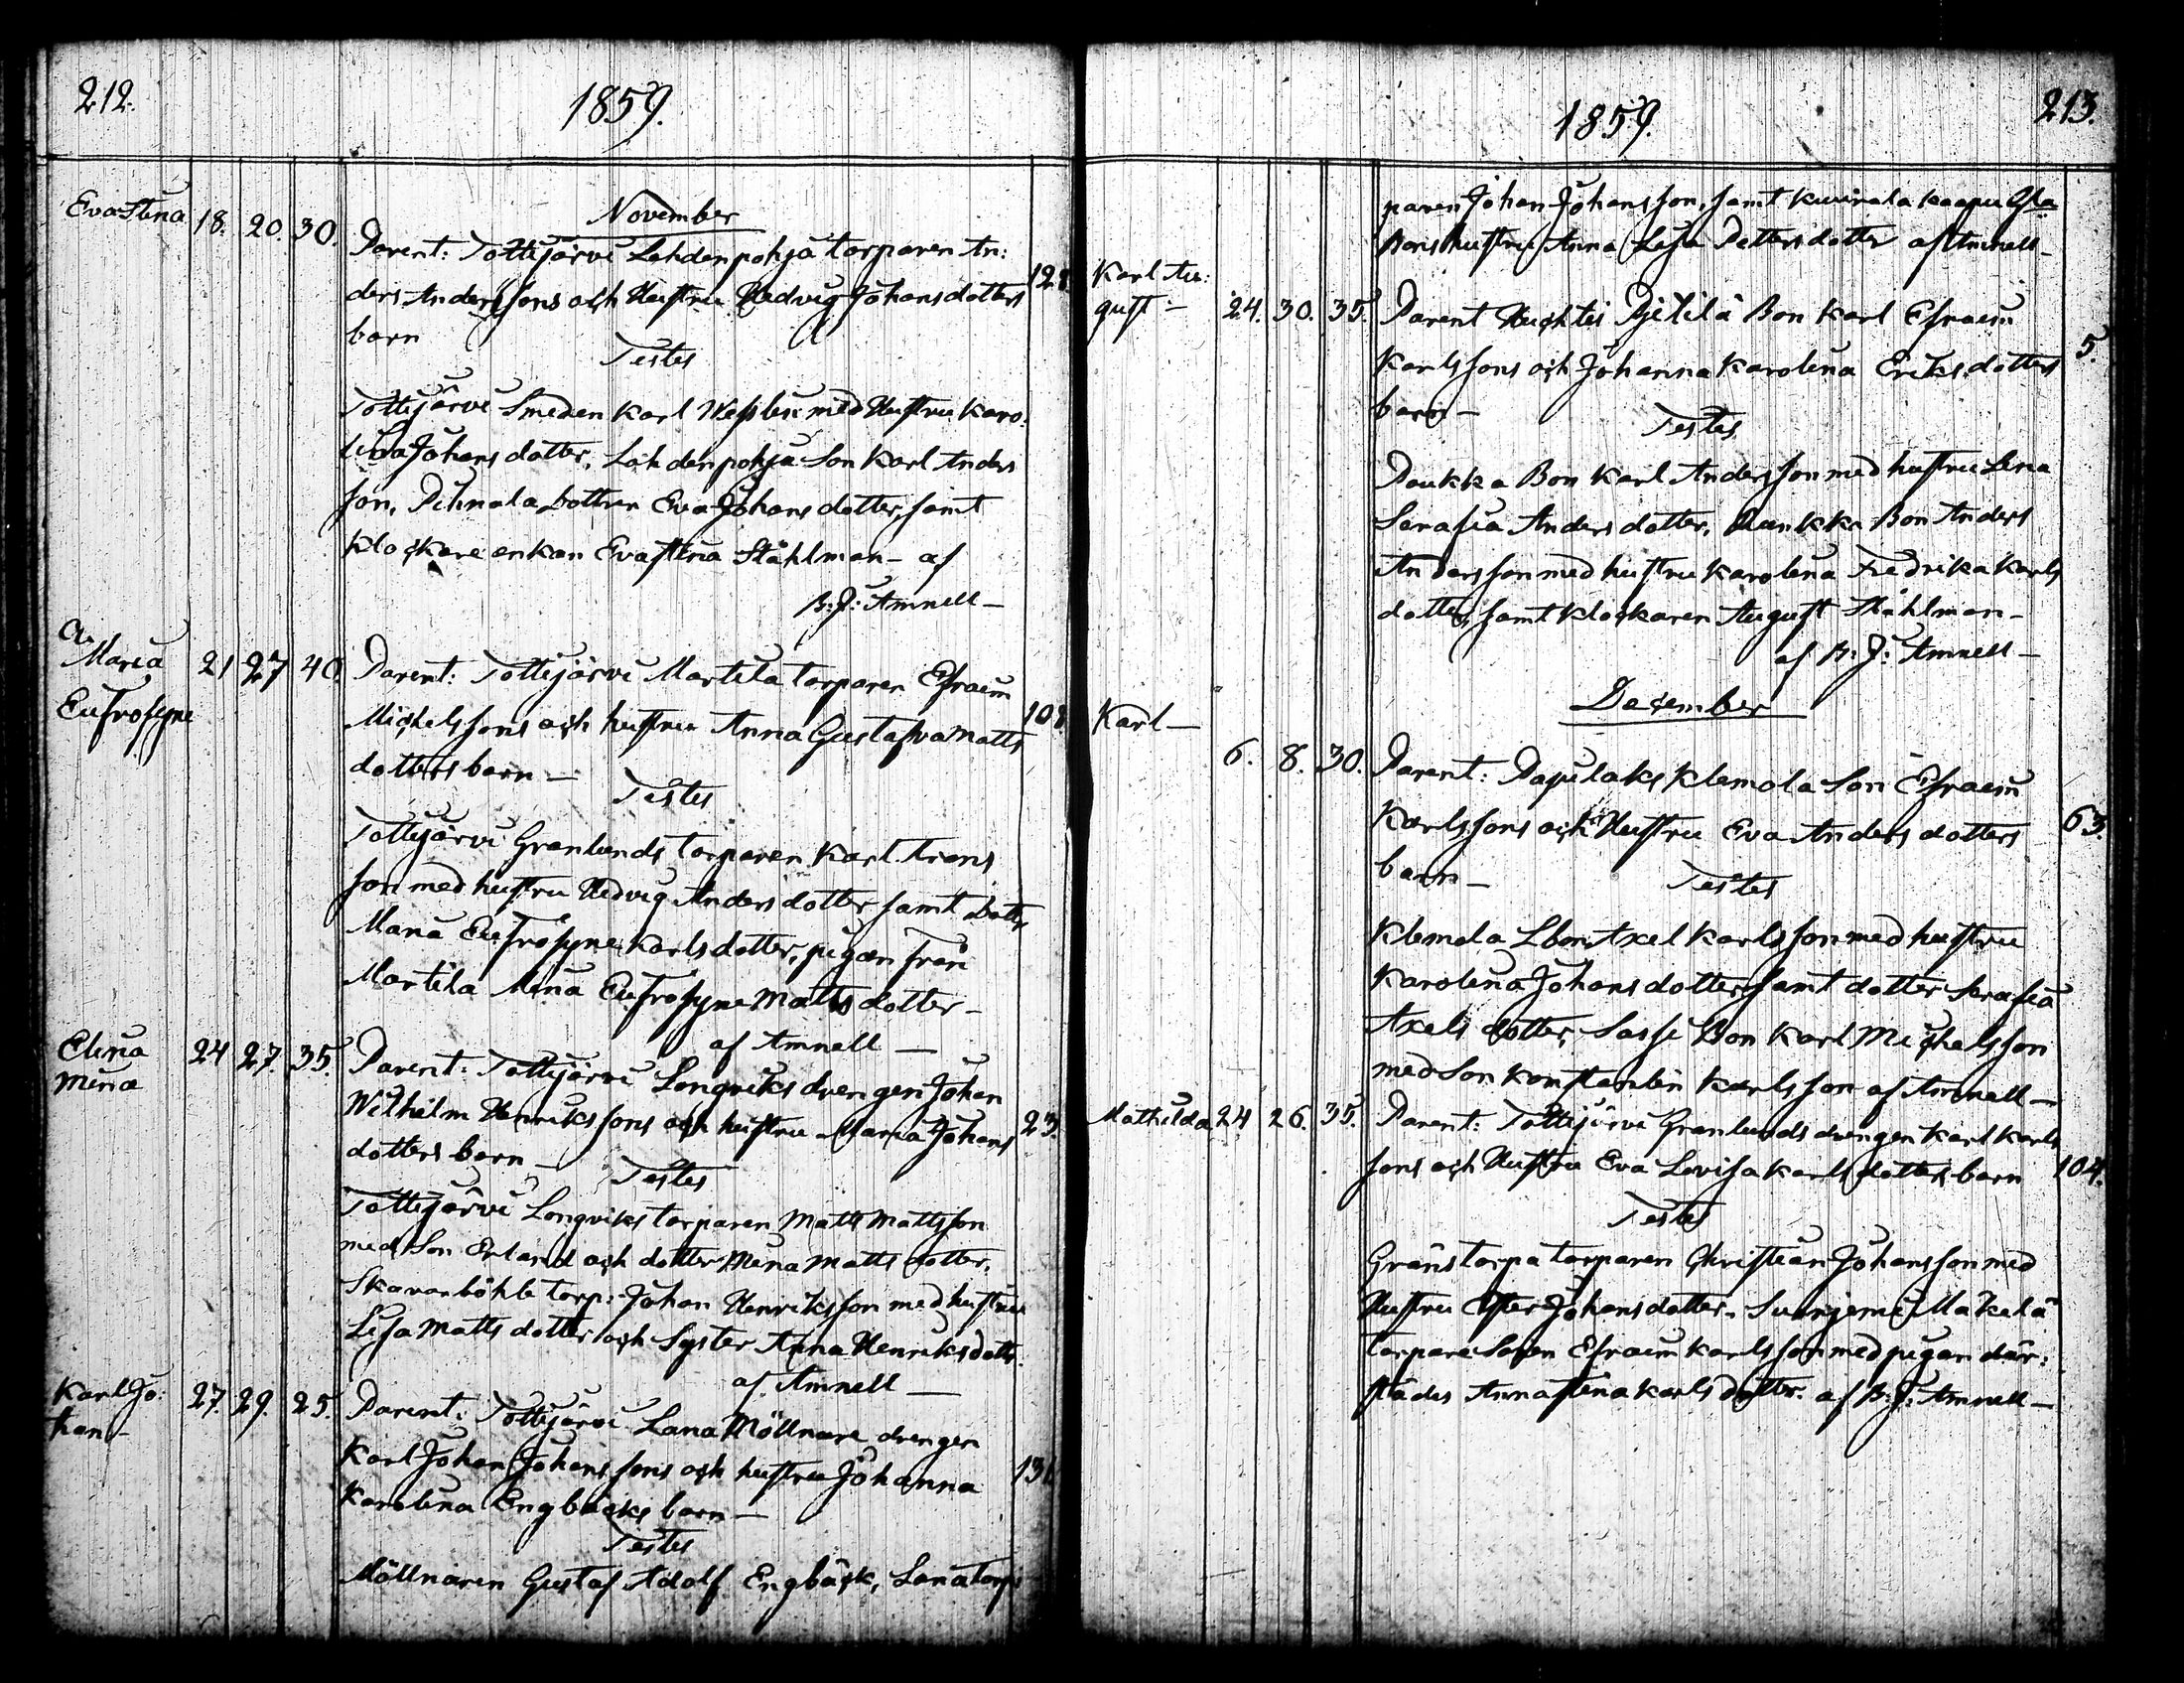 212.
1859.
November
Eva Stina 18. 20. 30. Parent: Tottijärvi Lehdenpohja torparen An:
ders Anderssons och Hustru Hedvig Johansdotters 128
barn
Testes
Tottijärvi Smeden Karl Wesslin med Hustru Karo:
lina Johansdotter, Lehdenpohja Son Karl Anders
son, Pihnala dottren Eva Johansdotter, samt
klockare enkan Eva Stina Ståhlman – af
B: J: Amnell –
Maria 21 27 40. Parent: Tottijärvi Martila torparen Efraim
Eufrosyne Michelssons och hustru Anna Gustafva Matts 108
dotters barn –
Testes
Tottijärvi Granlunds torparen Karl Frans
son med hustru Hedvig Andersdotter samt dotter
Maria Eufrosyne Karlsdotter, pigan från
Martila Mina Eufrosyne Mattsdotter –
af Amnell –
Elina 24 27. 35. Parent: Tottijärvi Longviks drengen Johan
Mina Wilhelm Henrikssons och hustru Maria Johans 23.
dotters barn –
Testes
Tottijärvi Longviks torparen Matts Mattsson
med Son Erland och dotter Mina Matts dotter,
Skavarböhle torp: Johan Henriksson med hustru
Lisa Mattsdotter och Syster Anna Henriksdotter
af Amnell –
Karl Jo: 27. 29. 25. Parent: Tottijärvi Lana Möllnare drengen
han – Karl Johan Johanssons och hustru Johanna 131
Karolina Engbäcks barn –
Testes
Möllnaren Gustaf Adolf Engbäck, Lana torp
1859.
213.
paren Johan Johansson, samt Kuivala
Bons hustru Anna Lisa Pettersdotter af Amnell –
Karl Au:
gust – 24. 30. 35. Parent Huchtis Pjetilä Bon Karl Efraim
Karlssons och Johanna Karolina Eriksdotters 5.
barn –
Testes
Paukka Bon Karl Andersson med hustru Lena
Serafia Andersdotter, Bon Anders
Andersson med hustru Karolina Fredrika Karls
dotter, samt Klockaren August Ståhlman –
af B: J: Amnell –
December
Karl – 6. 8. 30. Parent: Klemola Son Efraim
Karlssons och Hustru Eva Andersdotters 63.
barn –
Testes
Klemola Lbon Axel Karlsson med hustru
Karolina Johansdotter, samt dotter Serafia
Axelsdotter, Sassi Bon Karl Michelsson
med Son Konstantin Karlsson af Amnell –
Mathilda 24 26. 35. Parent: Tottijärvi Granlunds drengen Karl Karls
sons och Hustru Eva Lovisa Karlsdotters barn 104.
Testes
Gränstorpa torparen Christian Johansson med
Hustru Ester Johansdotter, Mäkelä
torpare Sonen Efraim Karlsson med pigan där:
städes Anna Stina Karlsdotter. af B: J: Amnell –